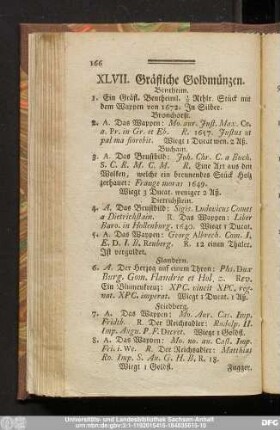 166
XLVII. Gräfliche Goldmünzen.
Bentheim.
1. Ein Gräfl. Bentheiml. ½ Rthlr. Stück mit
dem Wappen von 1672. In Silber.
Bronchorst.
2. A. Das Wappen: Mo. aur. Just. Max. Co.
a. Br. in Gr. et Eb. R. 1617. Justus ut
palma florebit. Wiegt 1 Ducat wen. 2 Aß.
3. A. Das Brustbild: Joh. Chr. C. a Buch.
S. C. R. M. C. M. R. Eine Art aus den
Wolken, welche ein brennendes Stück Holz
zerhauet: Frange moras 1649.
Wiegt 1 Ducat. weniger 2 Aß.
Dietrichstein.
4. A. Das Brustbild: Sigis. Ludovicus Comes
a Dietrichstain. R. Das Wappen: Liber
Baro. in Hollenburg. 1640. Wiegt 1 Ducat.
5. A. Das Wappen: Georg Albrech. Com. I.
E. D. I. B. Renberg. R. 12 einen Thaler.
Ist vergoldet.
Flandern.
6. A. Der Herzog auf einem Thron: Phs. Dux
Burg. Com. Flandrie et Hol. z. Rev.
Ein Blumenkreuz: XPC. vincit XPC. regnat.
XPC. imperat. Wiegt 1 Ducat. 1 Aß.
Friedberg.
7. A. Das Wappen: Mo. Aur. Cas. Imp.
Fridb. R. Der Reichsadler: Rudolp. II.
Imp. Augu. P. F. Decret. Wiegt 1 Goldfl.
8. A. Das Wappen: Mo. no. au. Cast. Imp.
Fri. i. We. R. Der Reichsadler: Matthias
Ro. Imp. S. Au. G. H. B. R. 18.
Wiegt 1 Goldfl.
Fugger.
Universitäts- und Landesbibliothek Sachsen-Anhalt